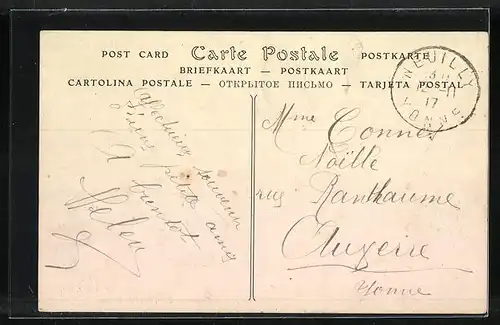 POST CARD Carte Postale POSTKARTE
BRIEFKAART — POSTKAART
CARTOLINA POSTALE — ОТКРЫТОЕ ПИСЬМО — TARJETA POSTAL
NEUILLY
17
YONNE
affectueux souvenir
petite amie
A bientôt
Mme
Noëlle
rue
Auxerre
Yonne